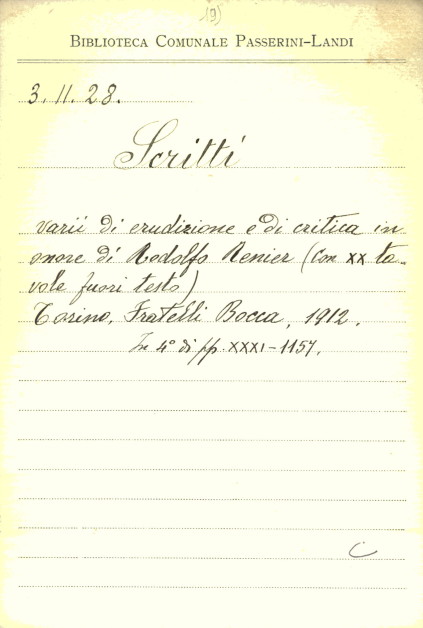 (9)
BIBLIOTECA COMUNALE PASSERINI-LANDI
3.11.28.
Scritti
varii di erudizione e di critica in
onore di Rodolfo Renier (Con XX ta-
vole fuori testo)
Torino, Fratelli Bocca, 1912.
In 4° di pp. XXXI-1157.
C